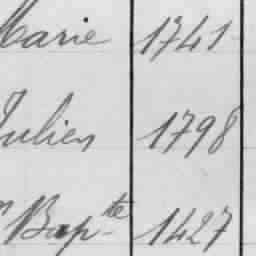 Marie 1741
Julien 1798
n Bap.te 1427